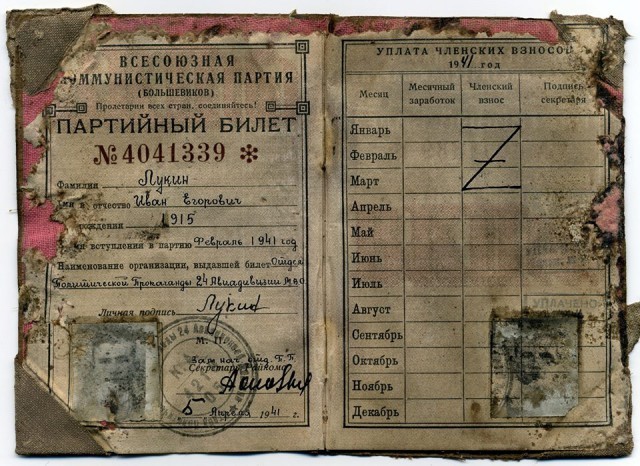 ВСЕСОЮЗНАЯ
КОММУНИСТИЧЕСКАЯ ПАРТИЯ
(БОЛЬШЕВИКОВ)
Пролетарии всех стран, соединяйтесь!
ПАРТИЙНЫЙ БИЛЕТ
№ 4041339 *
Фамилия Лукин
и отчество Иван Егорович
рождения 1915
вступления в партию Февраль 1941 год
Наименование организации, выдавшей билет Отдел
Политической Пропаганды 24 Авиадивизии
Личная подпись Лукин
М. П.
Зам. нач. отд. П.П.
Секретарь Райкома
5 Апреля 1941 г.
УПЛАТА ЧЛЕНСКИХ ВЗНОСОВ
1941 год
Месяц Месячный заработок Членский взнос Подпись секретаря
Январь
Февраль
Март
Апрель
Май
Июнь
Июль
Август
УПЛАЧЕНО
Сентябрь
Октябрь
Ноябрь
Декабрь